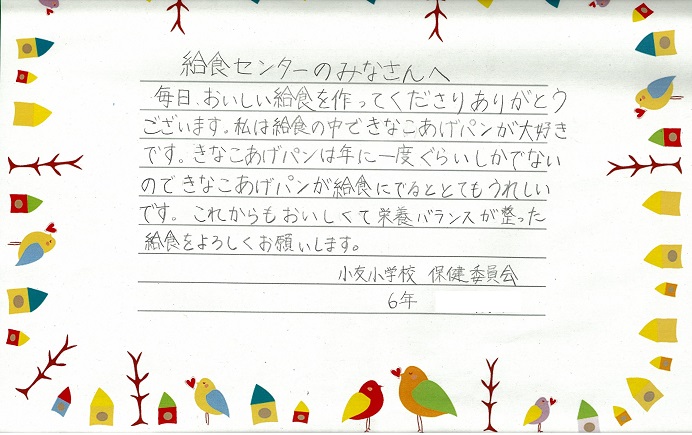 給食センターのみなさんへ
毎日、おいしい給食を作ってくださりありがとう
ございます。私は給食の中できなこあげパンが大好き
です。きなこあげパンは年に一度ぐらいしかでない
のできなこあげパンが給食にでるととてもうれしい
です。これからもおいしくて栄養バランスが整った
給食をよろしくお願いします。
小友小学校 保健委員会
6年